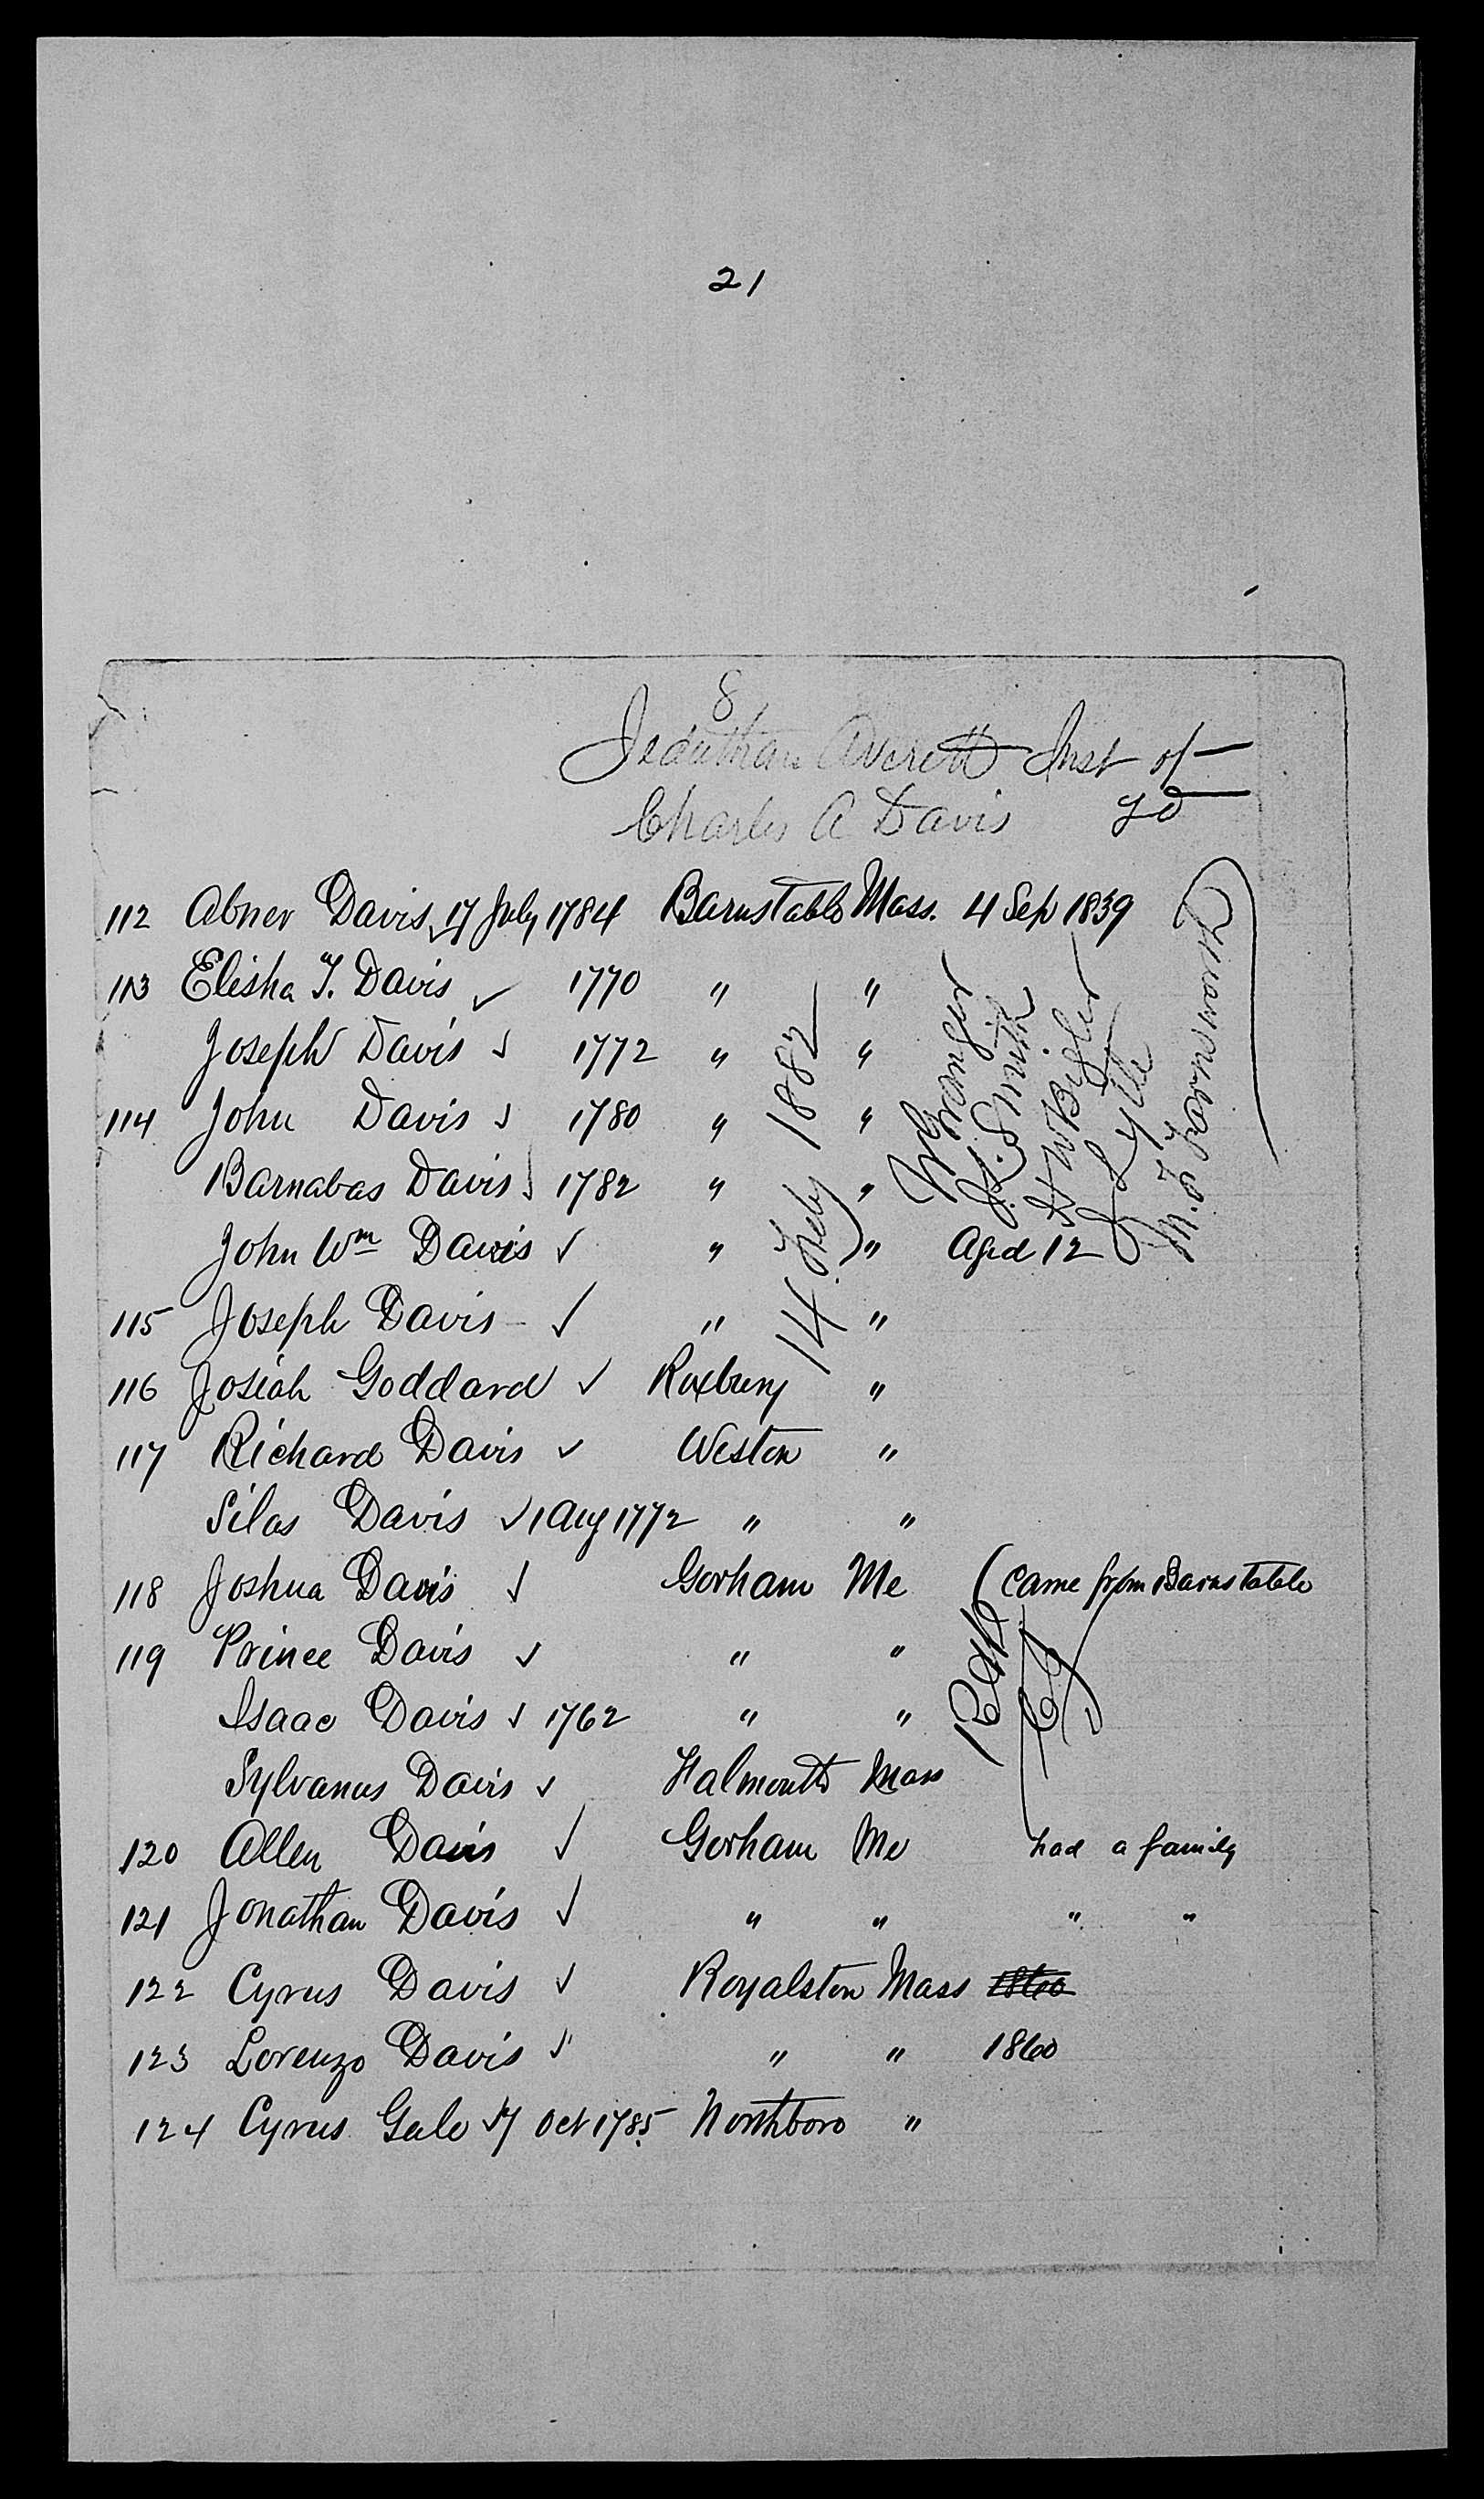 21
8
Jeduthan Averett Inst of
Charles A Davis gd
112 Abner Davis ✓ 17 July 1784 Barnstable Mass. 4 Sep 1839
113 Elisha T. Davis ✓ 1770 " "
Joseph Davis ✓ 1772 " "
114 John Davis ✓ 1780 " "
Barnabas Davis ✓ 1782 " "
John Wm Davis ✓ " " Aged 12
115 Joseph Davis - ✓ " "
116 Josiah Goddard ✓ Roxbury "
117 Richard Davis ✓ Weston "
Silas Davis ✓ 1 Aug 1772 " "
118 Joshua Davis ✓ Gorham Me (Came from Barnstable
119 Prince Davis ✓ " "
Isaac Davis ✓ 1762 " "
Sylvanus Davis ✓ Falmouth Mass
120 Allen Davis ✓ Gorham Me had a family
121 Jonathan Davis ✓ " " " "
122 Cyrus Davis ✓ Royalston Mass 1860
123 Lorenzo Davis ✓ " " 1860
124 Cyrus Gale ✓ 7 Oct 1785 Northboro "
14 Feby 1882
W Granger
J. S. Smith
H W Bigler
J Lytle
M. F. Farnsworth